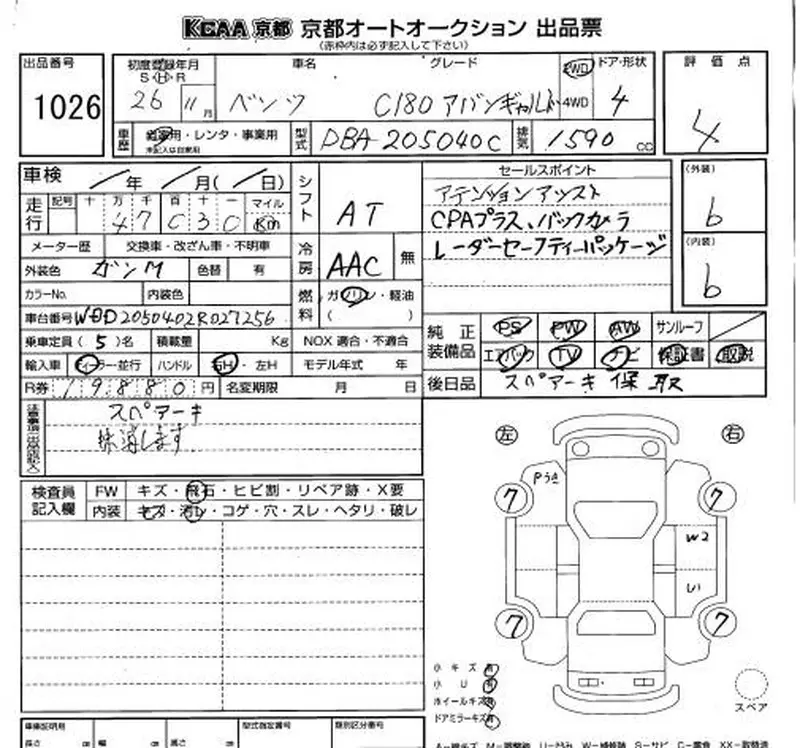 KCAA 京都 京都オートオークション 出品票
(赤枠内は必ず記入して下さい)
出品番号 初度登録年月 車名 グレード ドア・形状 評価点
S H R 2WD
1026 26 11月 ベンツ C180 アバンギャルド 4WD 4 4
車歴 自家用・レンタ・事業用 型式 DBA-205040C 排気 1590 CC
未記入は自家用
車検 年 月( 日) シフト AT セールスポイント (外装)
走行 記号 十 万 千 百 十 一 マイル アテンションアシスト 6
47030 Km CPAプラス、バックカメラ
メーター歴 交換車・改ざん車・不明車 冷房 AAC 無 レーダーセーフティーパッケージ (内装)
外装色 ガンM 色替 有 6
カラーNo. 内装色 燃料 ガソリン・軽油
車台番号 WDD2050402R027256 ( )
乗車定員 (5)名 積載量 Kg NOX 適合・不適合 純正装備品 PS PW AW サンルーフ
輸入車 ディーラー・並行 ハンドル 右H・左H モデル年式 年 エアバック TV ナビ 保証書 取説
R券 19880円 名変期限 月 日 後日品 スペアーキ 保 取
注意事項(出品店記入) スペアーキ
抹消します
左 右
検査員記入欄 FW キズ・飛石・ヒビ割・リペア跡・X要
内装 キズ・汚レ・コゲ・穴・スレ・ヘタリ・破レ
Pうき
7 7
W2
い
7 7
小キズ有
小U有
ホイールキズ有
ドアミラーキズ有
スペア
車庫証明用 型式指定番号 類別区分番号
長さ cm 幅 cm 高さ cm